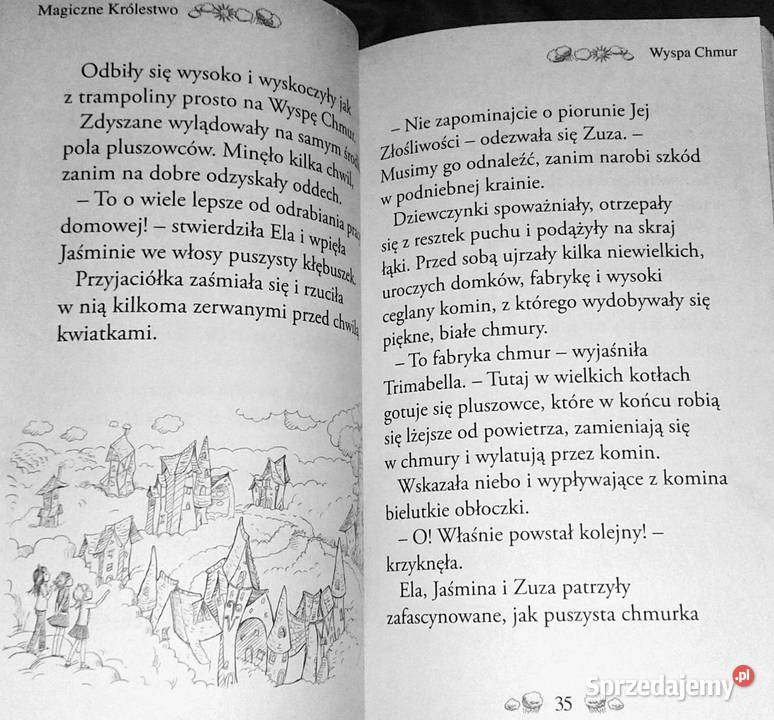 Magiczne Królestwo
Odbiły się wysoko i wyskoczyły jak
z trampoliny prosto na Wyspę Chmur.
Zdyszane wylądowały na samym
pola pluszowców. Minęło kilka chwil,
zanim na dobre odzyskały oddech.
– To o wiele lepsze od odrabiania
domowej! – stwierdziła Ela i wpięła
Jaśminie we włosy puszysty kłębuszek.
Przyjaciółka zaśmiała się i rzuciła
w nią kilkoma zerwanymi przed chwilą
kwiatkami.
Wyspa Chmur
– Nie zapominajcie o piorunie Jej
Złośliwości – odezwała się Zuza. –
Musimy go odnaleźć, zanim narobi szkód
w podniebnej krainie.
Dziewczynki spoważniały, otrzepały
się z resztek puchu i podążyły na skraj
łąki. Przed sobą ujrzały kilka niewielkich,
uroczych domków, fabrykę i wysoki
ceglany komin, z którego wydobywały się
piękne, białe chmury.
– To fabryka chmur – wyjaśniła
Trimabella. – Tutaj w wielkich kotłach
gotuje się pluszowce, które w końcu robią
się lżejsze od powietrza, zamieniają się
w chmury i wylatują przez komin.
Wskazała niebo i wypływające z komina
bielutkie obłoczki.
– O! Właśnie powstał kolejny! –
krzyknęła.
Ela, Jaśmina i Zuza patrzyły
zafascynowane, jak puszysta chmurka
35
Sprzedajemy.pl